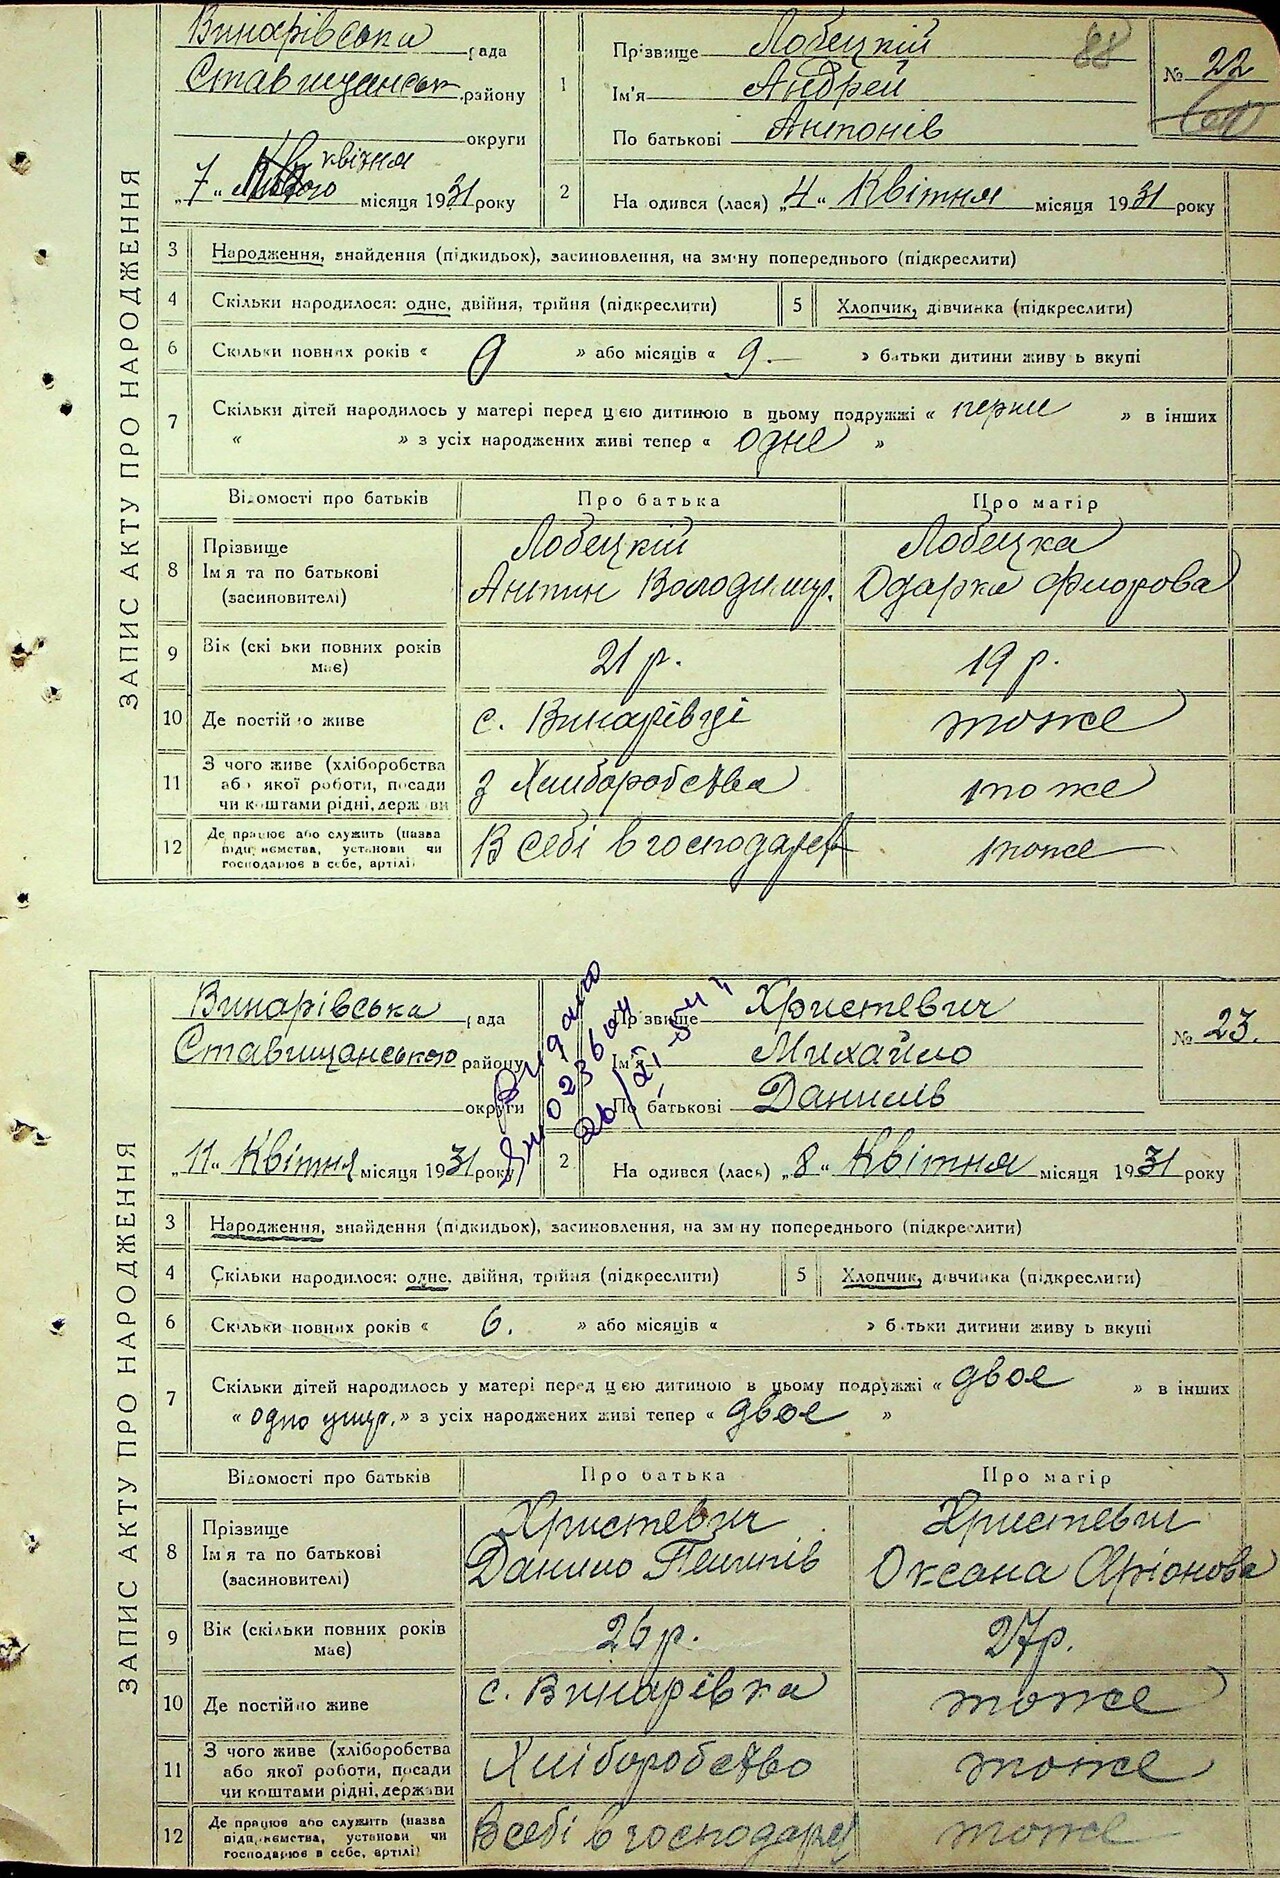 ЗАПИС АКТУ ПРО НАРОДЖЕННЯ
Винарівська рада
Ставищанськ району
округи
„7“ квітня місяця 1931 року
1
Прізвище Лобецкій
Ім'я Андрей
По батькові Антонів
88
№ 22
2 На одився (лася) „4“ Квітня місяця 1931 року
3 Народження, знайдення (підкидьок), засиновлення, на зм·ну попереднього (підкреслити)
4 Скільки народилося: одне, двійня, трійня (підкреслити) 5 Хлопчик, дівчинка (підкреслити)
6 Скільки повних років « 0 » або місяців « 9.— » батьки дитини живу ь вкупі
7 Скільки дітей народилось у матері перед цією дитиною в цьому подружжі « перше » в інших
« » з усіх народжених живі тепер « одне »
Відомості про батьків Про батька Про матір
8 Прізвище Лобецкій Лобецка
Ім'я та по батькові Антин Володимир. Одарка Фиорова
(засиновителі)
9 Вік (скі ьки повних років має) 21 р. 19 р.
10 Де постійно живе с. Винарівці тоже
11 З чого живе (хліборобства або якої роботи, посади чи коштами рідні, держ ви З Хліборобства тоже
12 Де працює або служить (назва підприємства, установи чи господарює в себе, артілі) В себі в господарст тоже
ЗАПИС АКТУ ПРО НАРОДЖЕННЯ
Винарівська рада
Ставищанського району
округи
„11“ Квітня місяця 1931 року
Видано
023604
26/XI-54
Прізвище Христевич
Ім'я Михайло
По батькові Данилів
№ 23.
2 На одився (лась) „8“ Квітня місяця 1931 року
3 Народження, знайдення (підкидьох), засиновлення, на зм ну попереднього (підкреслити)
4 Скільки народилося: одне, двійня, трійня (підкреслити) 5 Хлопчик, дівчинка (підкреслити)
6 Скільки повних років « 6. » або місяців « » б·тьки дитини живу ь вкупі
7 Скільки дітей народилось у матері перед цією дитиною в цьому подружжі « двоє » в інших
« одно умер. » з усіх народжених живі тепер « двоє »
Відомості про батьків Про батька Про матір
8 Прізвище Христевич Христевич
Ім'я та по батькові Данило Пилипів Оксана Аріонова
(засиновителі)
9 Вік (скільки повних років має) 26 р. 27 р.
10 Де постійно живе с. Винарівка тоже
11 З чого живе (хліборобства або якої роботи, посади чи коштами рідні, держави Хліборобство тоже
12 Де працює або служить (назва підприємства, установи чи господарює в себе, артілі) В себі в господарст тоже